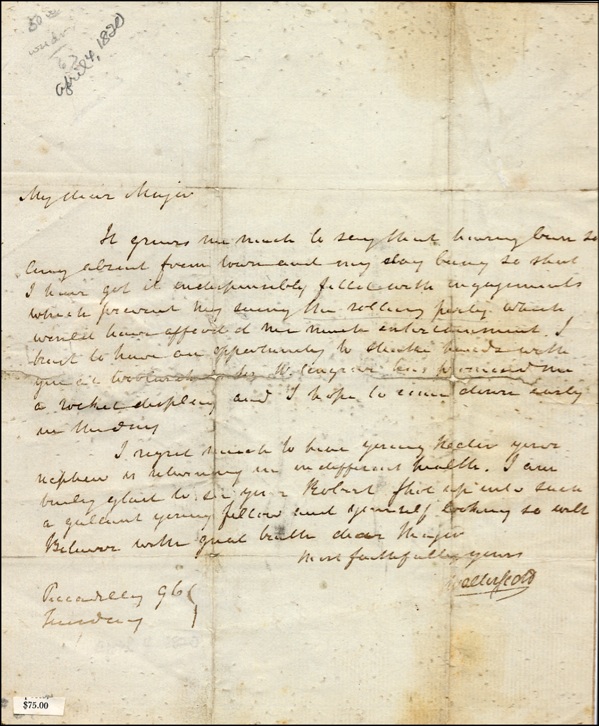 April 4, 1820
My dear Major
It grieves me much to say that having been so
long absent from town and my stay being so short
I have got it indispensibly filled with engagements
which prevent my seeing the party which
would have afford me much entertainment. I
trust to have an opportunity to shake hands with
you at Woolwich Sir W. Congreve has promised me
a rocket display and I hope to come down early
on Thursday
I regret much to hear young Hector your
nephew is returning in indifferent health. I am
truly glad to see your Robert shot up into such
a gallant young fellow and yourself looking so well
Believe with great truth dear Major
most faithfully yours
Walter Scott
Piccadilly 96
Tuesday
$75.00